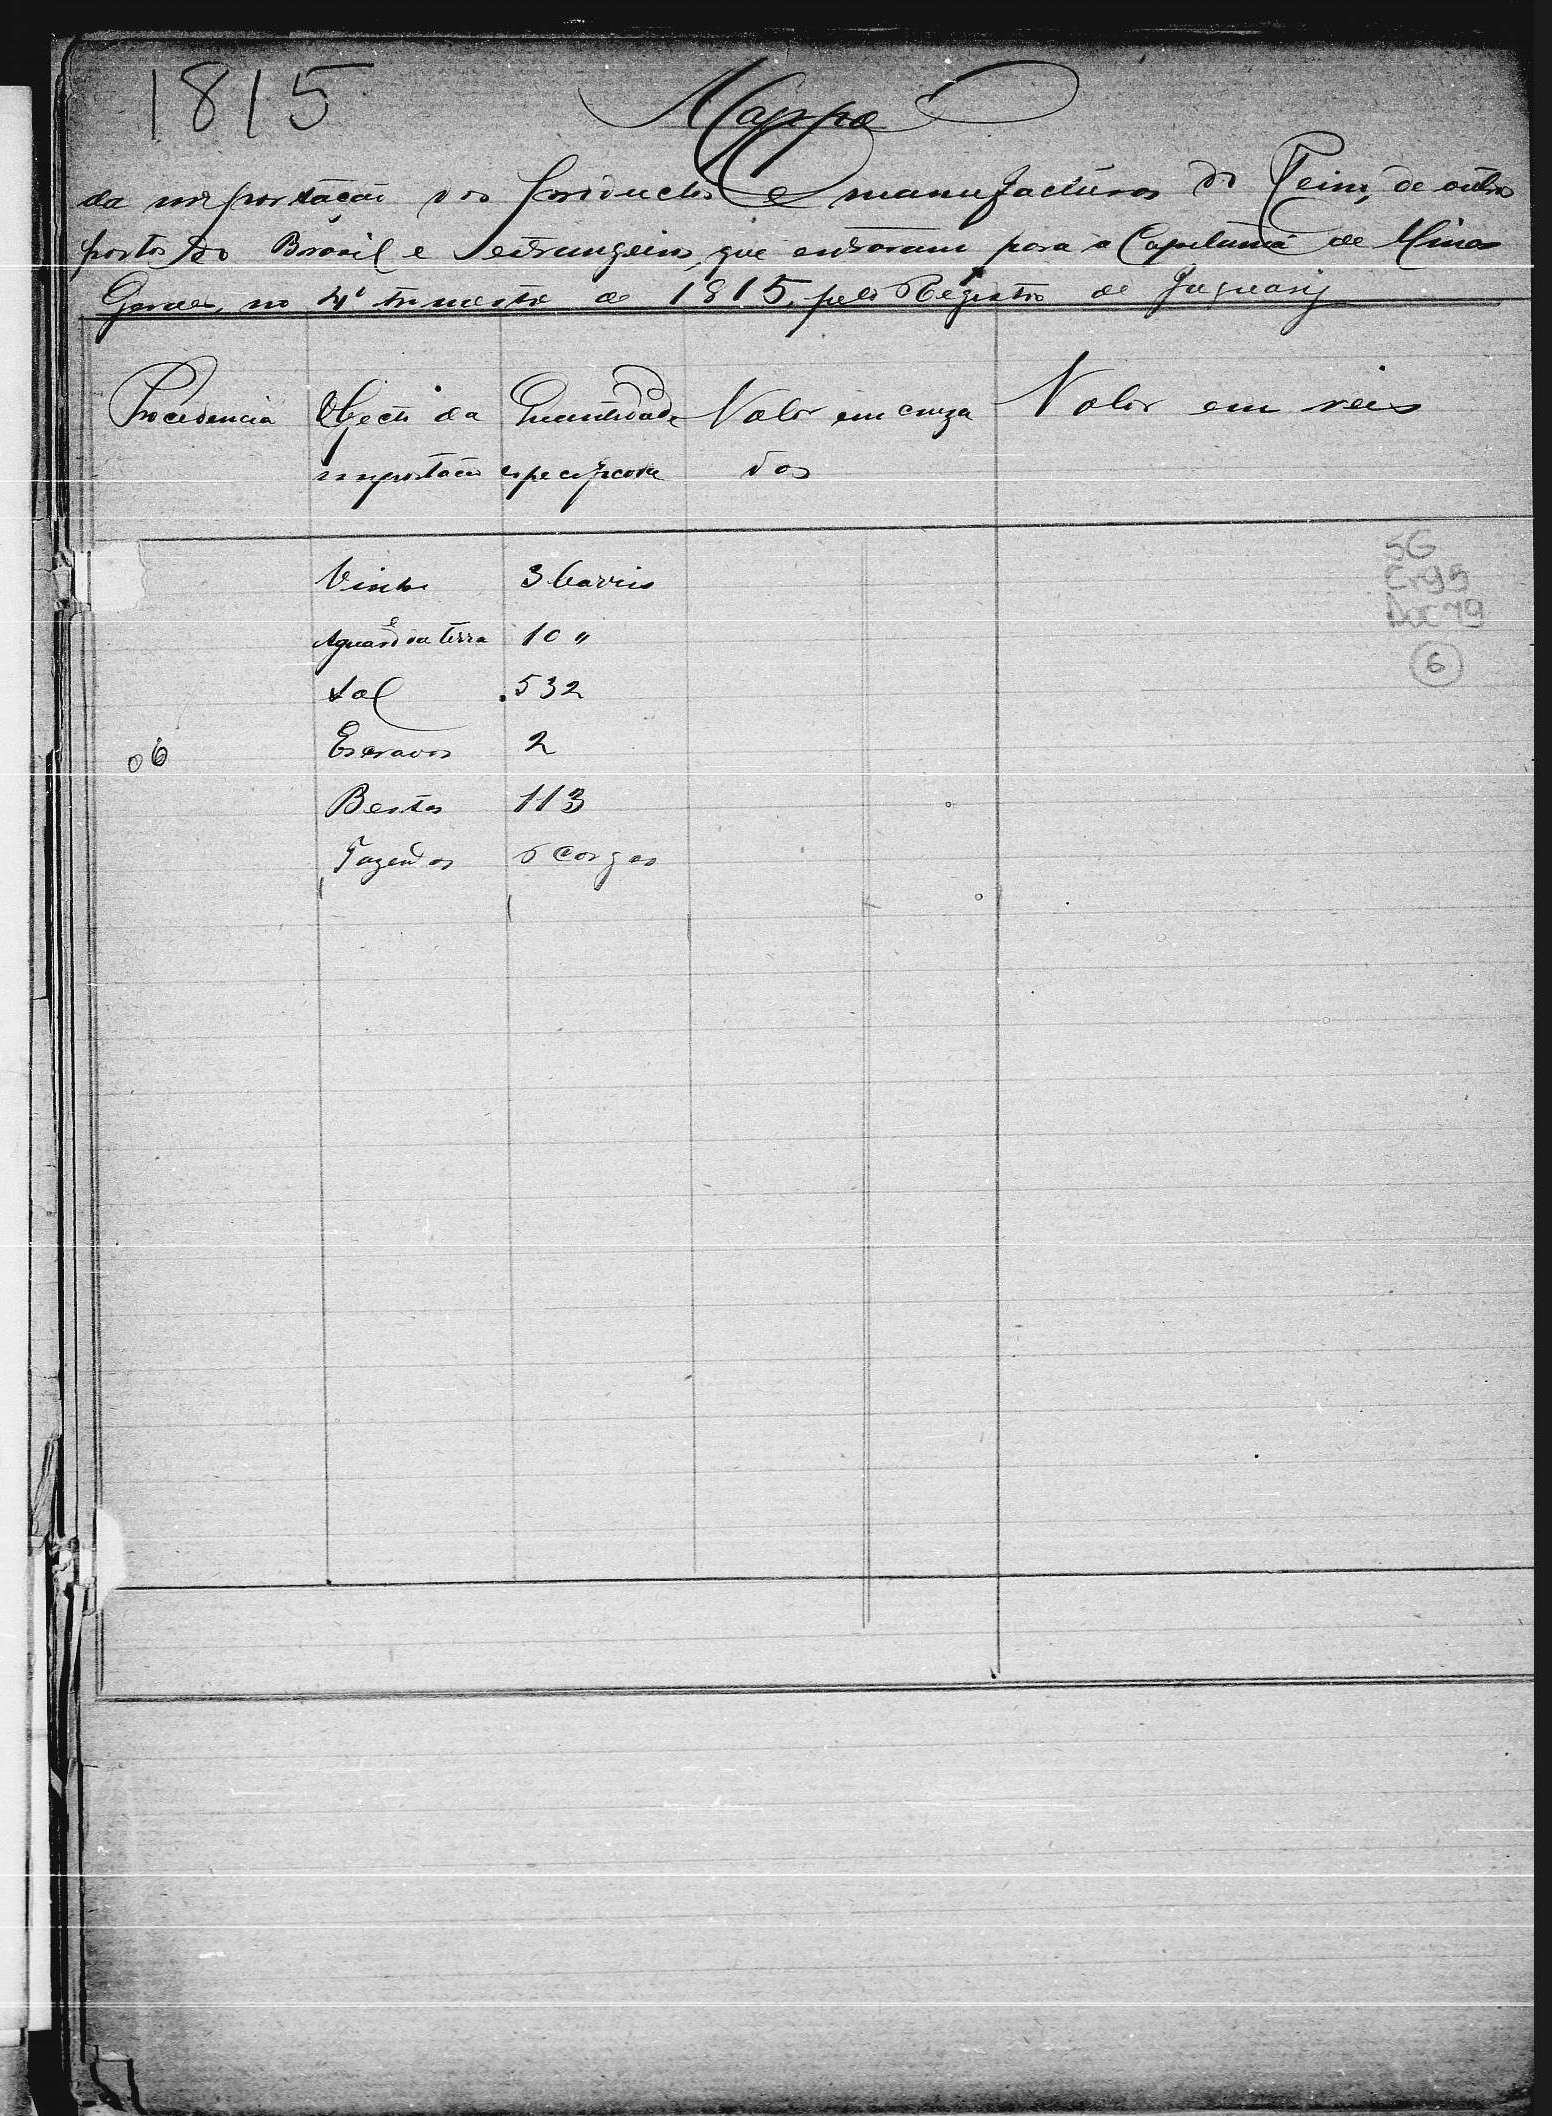 1815
Mappa
da importação dos productos e manufacturas do Reino, de outros
portos do Brasil e estrangeiros, que entraram para a Capitania de Minas
Geraes, no 4º trimestre de 1815, pelo Registro de Jaguary
Procedencia Objecto da Quantidade Valor em cruza Valor em reis
importação especificada dos
Vinho 3 barris
Aguardᵉ da terra 10 "
Sal 532
Escravos 2
Bestas 113
Fazendas 6 Cargas
06
SG
Cx 95
Doc 79
6